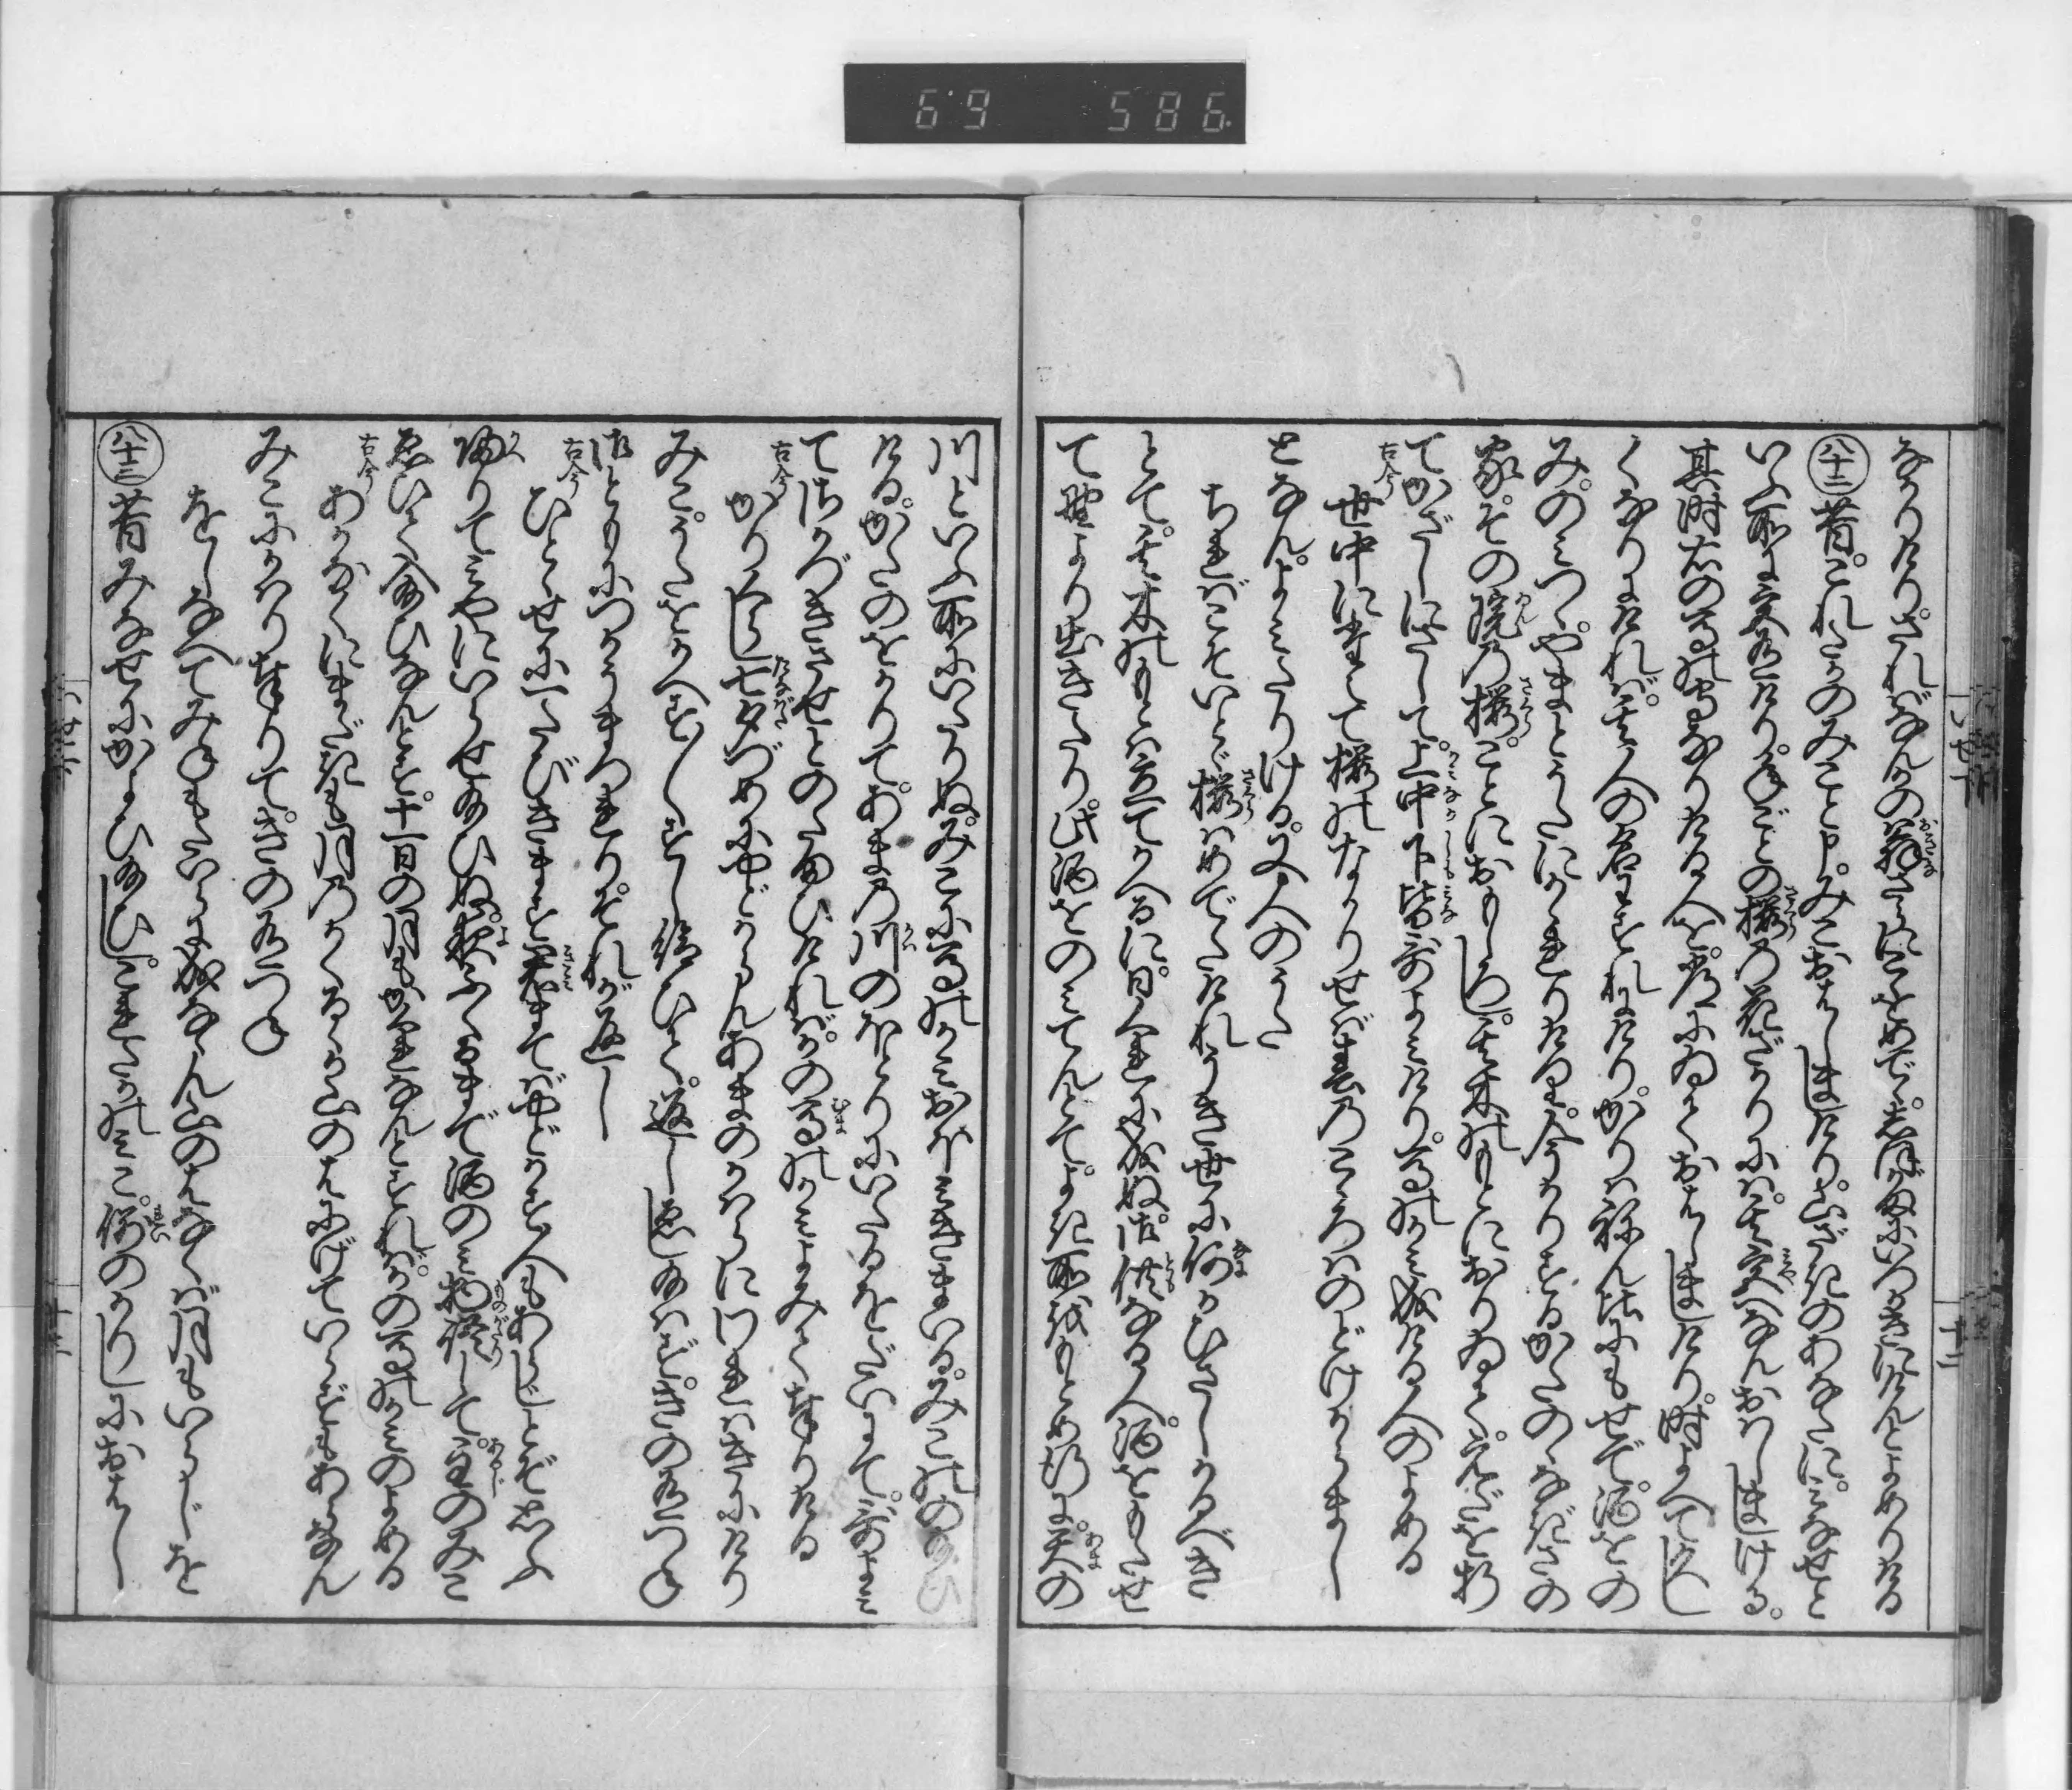 69 586
なかりけり。されば なんかの翁さらにこゝをめでゝ。しほがまにいつかきにけんとよめりける
八十二 昔。これたかのみこと申。みこおはしましけり。山ざきのあなたに。みなせと
いふ所に宮有けり。年ごとの桜の花ざかりには。其宮へなんおはしましける。
其時右の馬の頭なりける人を。常にゐておはしましけり。時よへて久し
くなりにければ。其人の名わすれにけり。かりはねん比にもせで。酒をの
みのみつゝ。やまとうたにかゝれりけり。今かりするかたのゝなぎさの
家。その院の桜。ことにおもしろし。其木のもとにおりゐて。えだを折
てかざしにさして。上中下皆哥よみけり。馬の頭成ける人のよめる
古今 世中に絶て桜のなかりせば春の心はのどけからまし
となん。よみたりける。又人のうた
ちればこそいとゞ桜はめでたけれうき世に何か久しかるべき
とて。其木のもとは立てかへるに。日くれに成ぬ。御供なる人。酒をもたせ
て野より出きたり。此酒をのみてんとて。よき所を求め行に。天の
川といふ所にいたりぬ。みこに馬の頭おほみきまいる。みこののたまひ
ける。かたのをかりて。あまの川のほとりにいたるをだいにて。哥よみ
てさかづきはさせとのたまひければ。かの馬の頭よみて奉りける
古今 かりくらし七夕づめにやどからんあまのかはらに我はきにけり
みこ。うたをかへすがへすじゆし給ひて。返しえし給はず。きの有つね
御ともにつかうまつれり。それが返し
古今 ひとゝせに一たびきます君まてばやどかす人もあらじとぞ思ふ
帰りてみやにいらせ給ひぬ。夜ふくるまで酒のみ物語して。あるじのみこ
ゑひて入給ひなんとす。十一日の月もかくれなんとすれば。かの馬の頭のよめる
古今 あかなくにまだきも月のかくるゝか山のはにげていれずもあらなん
みこにかはり奉りて。きの有つね
をしなべてみねもたいらに成なゝん山のはなくば月もいらじを
八十三 昔みなせにかよひ給ひし。これたかのみこ。例のかりしにおはし